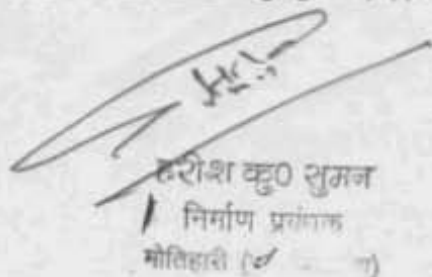 हरीश कु0 सुमन
निर्माण प्रबंधक
मोतिहारी